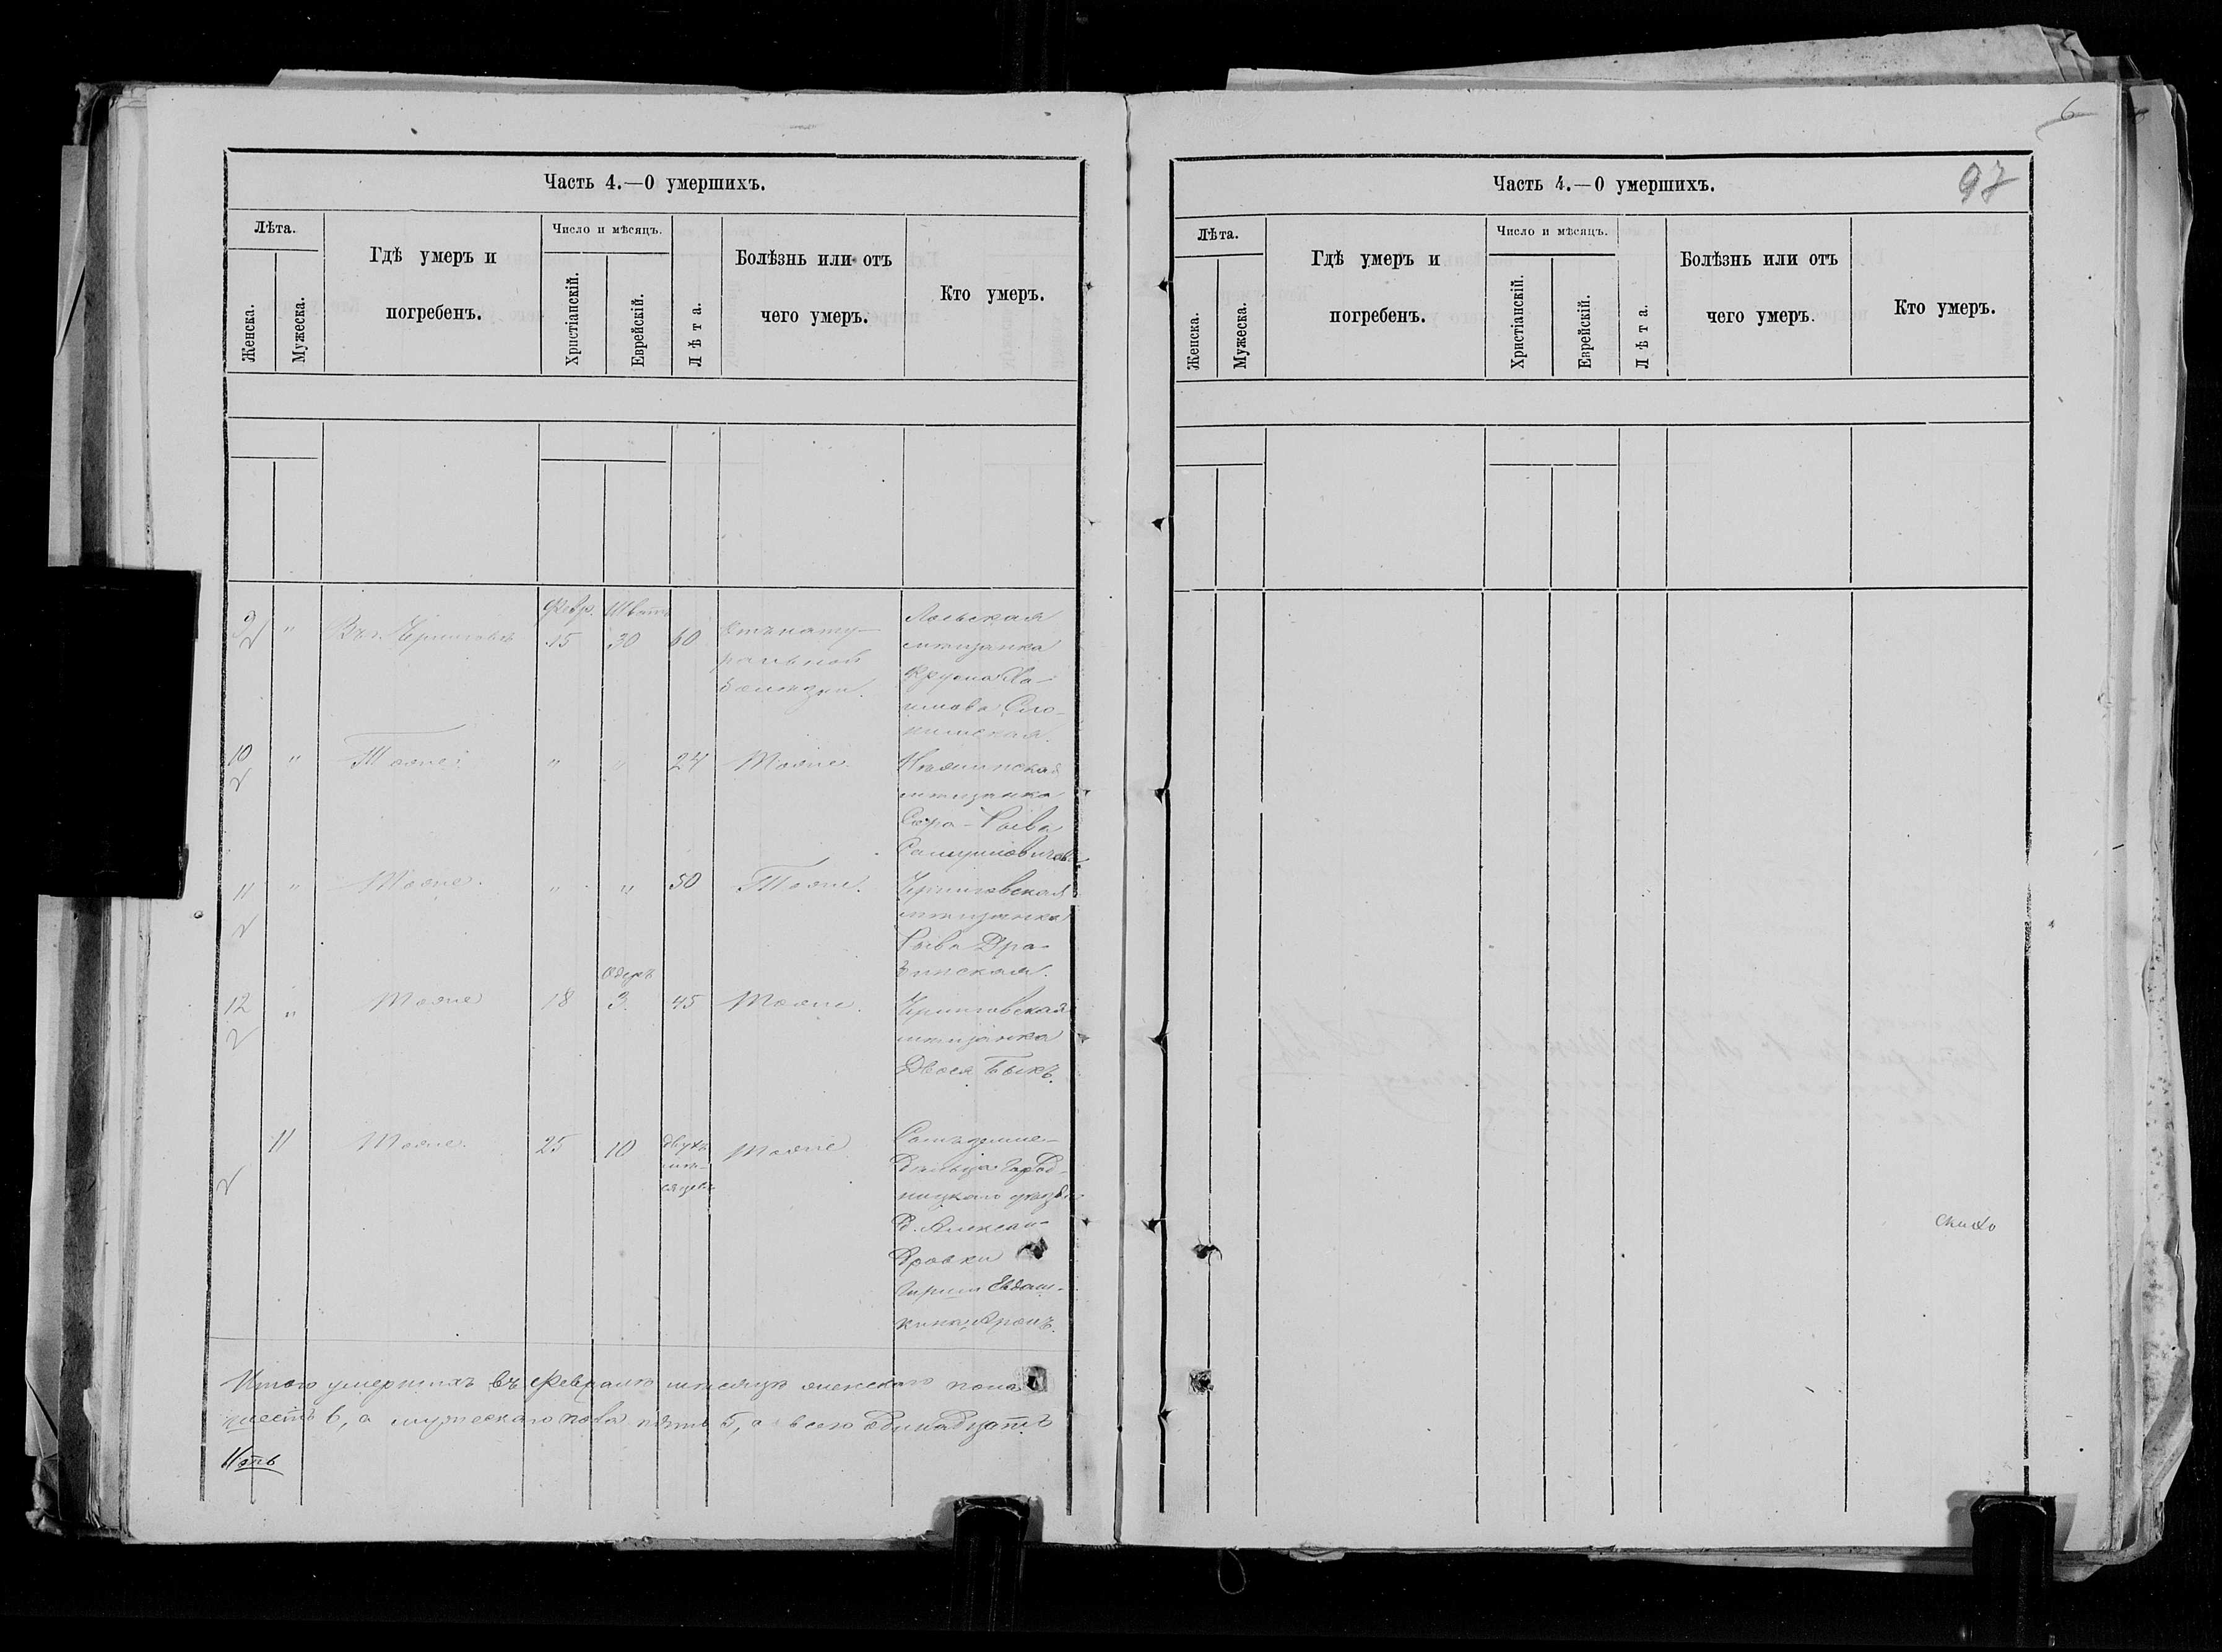 Часть 4.—О умершихъ.
Лѣта.
Женска.
Мужеска.
Гдѣ умеръ и
погребенъ.
Число и мѣсяцъ.
Христіанскій.
Еврейскій.
Лѣта.
Болѣзнь или отъ
чего умеръ.
Кто умеръ.
9 " Въ г. Черниговѣ
Февр. 15
Шватъ 30
60
Отъ нату-
ральной
болѣзни.
Лоевская
мѣщанка
Фрума Ха-
имова Сло-
нимская.
10 " Тоже " " 24 Тоже.
Нѣжинская
мѣщанка
Сора-Рыва
11 " Тоже. " " 50 Тоже.
Черниговская
мѣщанка
Рыва Дра-
бинская.
12 " Тоже 18
Одеръ
3. 45 Тоже.
Черниговская
мѣщанка
Двося Быкъ.
11 Тоже. 25 10
двухъ
мѣ-
сяцевъ
Тоже.
дѣльца Город-
ницкаго уѣзда
д. Алексан-
дровки
кина Аронъ.
Итого умершихъ въ Февралѣ мѣсяцѣ женскаго пола
шесть 6, а мужескаго пола пять 5, а всего одинадцать
11ть
6
97
Часть 4.—О умершихъ.
Лѣта.
Женска.
Мужеска.
Гдѣ умеръ и
погребенъ.
Число и мѣсяцъ.
Христіанскій.
Еврейскій.
Лѣта.
Болѣзнь или отъ
чего умеръ.
Кто умеръ.